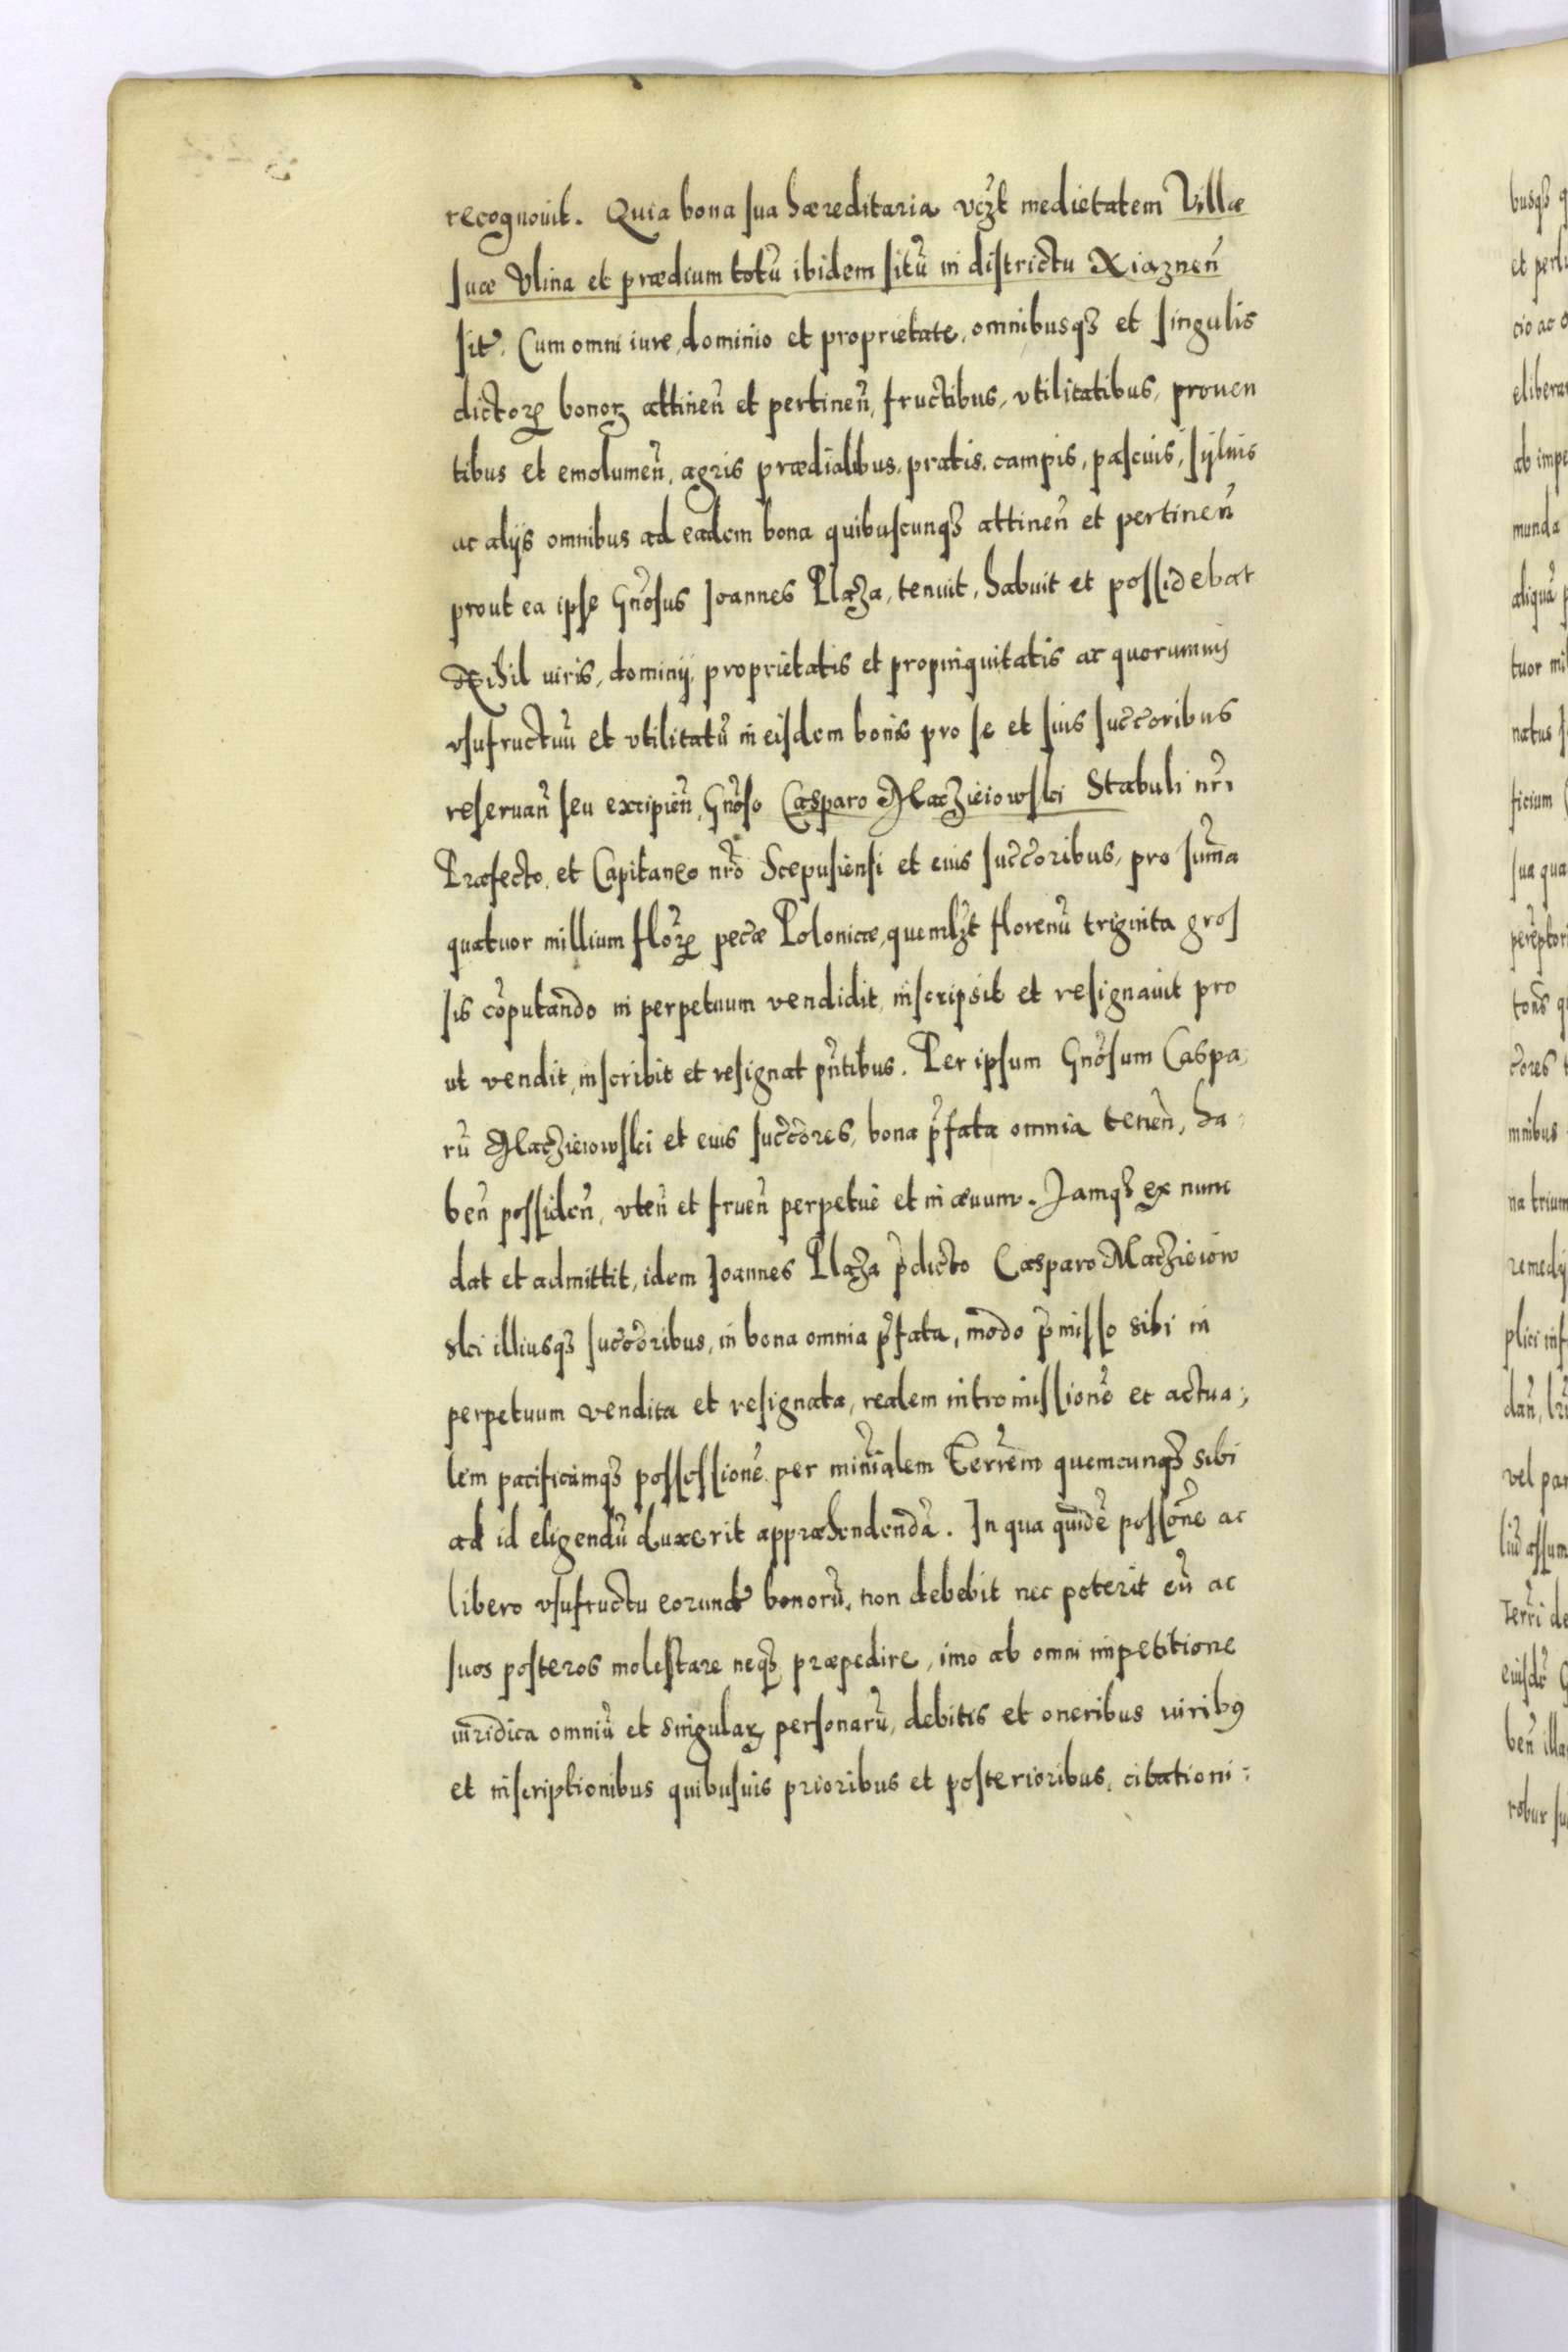 recognouit. Quia bona sua hæreditaria vczt medietatem Villæ
suæ Vlina et prædium totū ibidem sitū in districtu Xiąznen̄
sit. Cum omni iure, dominio et proprietate, omnibusqȝ et singulis
dictorꝝ bonoꝝ attinen̄ et pertinen̄, fructibus, vtilitatibus, prouen
tibus et emolumen̄, agris prædialibus, pratis, campis, pascuis, syluis
ac alijs omnibus ad eadem bona quibuscunqȝ attinen̄ et pertinen̄
prout ea ipse Gn̄osus Joannes Plaza, tenuit, habuit et possidebat
Nihil iuris, dominij, proprietatis et propinquitatis ac quorumuis
vsufructuū et vtilitatū in eisdem bonis pro se et suis succ̄oribus
reseruan̄ seu excipien̄, Gn̄oso Casparo Maczieiowski Stabuli nr̄i
Præfecto, et Capitaneo nr̄o Scepusiensi et eius succ̄oribus, pro sum̄a
quatuor millium flor̄ꝝ pec̄æ Polonicæ, quemlzt florenū triginta gros
sis cōputando in perpetuum vendidit, inscripsit et resignauit pro
ut vendit, inscribit et resignat pn̄tibus. Per ipsum Gn̄osum Caspa:
rū Maczieiowski et eius succ̄ores, bona p̄fata omnia tenen̄, ha:
ben̄ possiden̄, vten̄ et fruen̄ perpetue et in æuum. Jamqȝ ex nunc
dat et admittit, idem Joannes Plaza p̄dicto Casparo Maczieiow
ski illiusqȝ succ̄oribus, in bona omnia p̄fata, modo p̄misso sibi in
perpetuum vendita et resignata, realem intromissionē et actua:
lem pacificamqȝ possessionē per min̄ialem Terr̄em quemcunqȝ sibi
ad id eligendū duxerit appræhendendā. In qua quidē poss̄one ac
libero vsufructu eorundē bonorū, non debebit nec poterit eū ac
suos posteros molestare neqȝ præpedire, imo ab omni impetitione
iuridica omniū et singulaꝝ personarū, debitis et oneribus iuribꝰ
et inscriptionibus quibusuis prioribus et posterioribus, citationi: